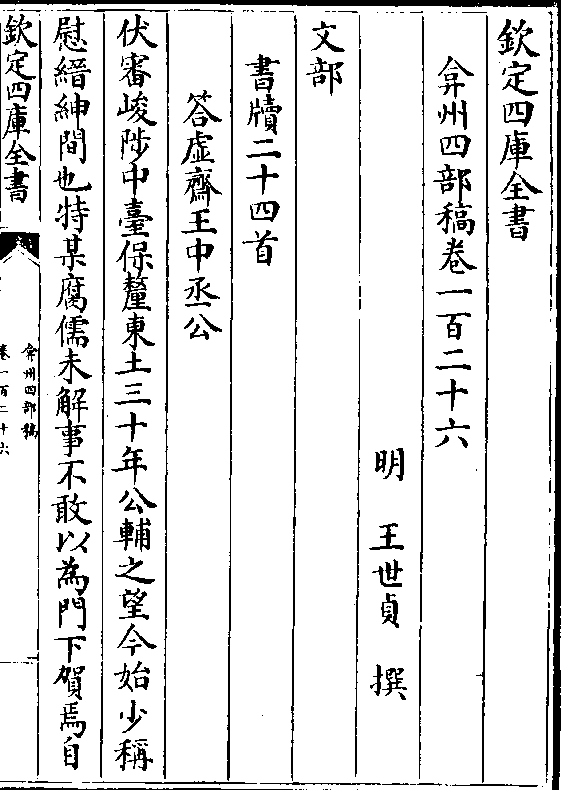 欽定四庫全書
弇州四部稿卷一百二十六
明 王世貞 撰
文部
書牘二十四首
答虚齋王中丞公
伏審峻陟中臺保釐東土三十年公輔之望今始少稱
慰縉紳間也特某腐儒未解事不敢以為門下賀焉自
欽定四庫全書
弇州四部稿
卷一百二十六